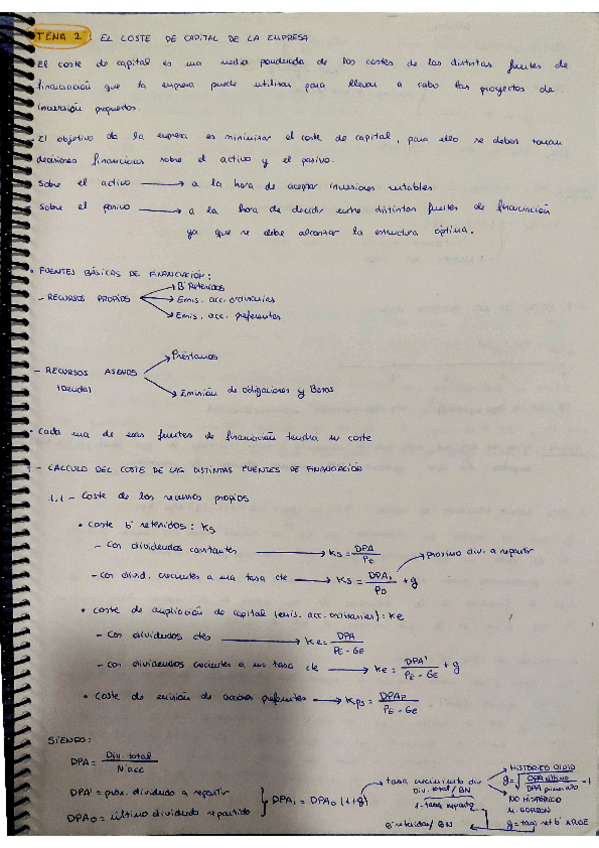 TEMA 2: EL COSTE DE CAPITAL DE LA EMPRESA
El coste de capital es una media ponderada de los costes de las distintas fuentes de
financiación que la empresa puede utilizar para llevar a cabo los proyectos de
inversión propuestos.
El objetivo de la empresa es minimizar el coste de capital, para ello se deben tomar
decisiones financieras sobre el activo y el pasivo.
Sobre el activo → a la hora de aceptar inversiones rentables
Sobre el pasivo → a la hora de decidir entre distintas fuentes de financiación
ya que se debe alcanzar la estructura óptima.
• FUENTES BÁSICAS DE FINANCIACIÓN:
→ Bº Retenidos
- RECURSOS PROPIOS → Emis. acc. ordinarias
→ Emis. acc. preferentes
→ Préstamos
- RECURSOS AJENOS
(Deuda) → Emisión de obligaciones y Bonos
• Cada una de esas fuentes de financiación tendrá su coste
1 - CALCULO DEL COSTE DE LAS DISTINTAS FUENTES DE FINANCIACIÓN
1.1 - Coste de los recursos propios
• Coste bº retenidos: Ks
- Con dividendos constantes → Ks = DPA / P0
- Con divid. crecientes a una tasa cte → Ks = DPA1 / P0 + g → próximo div. a repartir
• Coste de ampliación de capital (emis. acc. ordinarias): Ke
- Con dividendos ctes → Ke = DPA / PE - GE
- Con dividendos crecientes a una tasa cte → Ke = DPA1 / PE - GE + g
• Coste de emisión de acciones preferentes → Kps = DPAP / PE - GE
SIENDO:
DPA = Div. total / Nº acc
DPA1 = próx. dividendo a repartir
DPA0 = último dividendo repartido } DPA1 = DPA0 (1+g)
→ tasa crecimiento div
→ HISTÓRICO
g = √ DPA último / DPA primer año - 1
Div. total / BN
1 - tasa reparto
NO HISTÓRICO
M. GORDON
Bº retenidos / BN
g = tasa ret bº x ROE